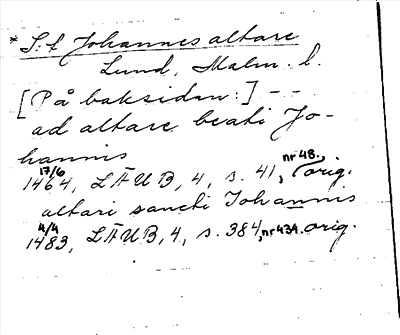 * S:t Johannes altare
Lund, Malm. l.
[På baksidan:] - -
ad altare beati Jo-
hannis
17/6 1464, LÄUB, 4, s. 41, nr 48., orig.
altari sancti Johannis
4/4 1483, LÄUB, 4, s. 384, nr 434. orig.